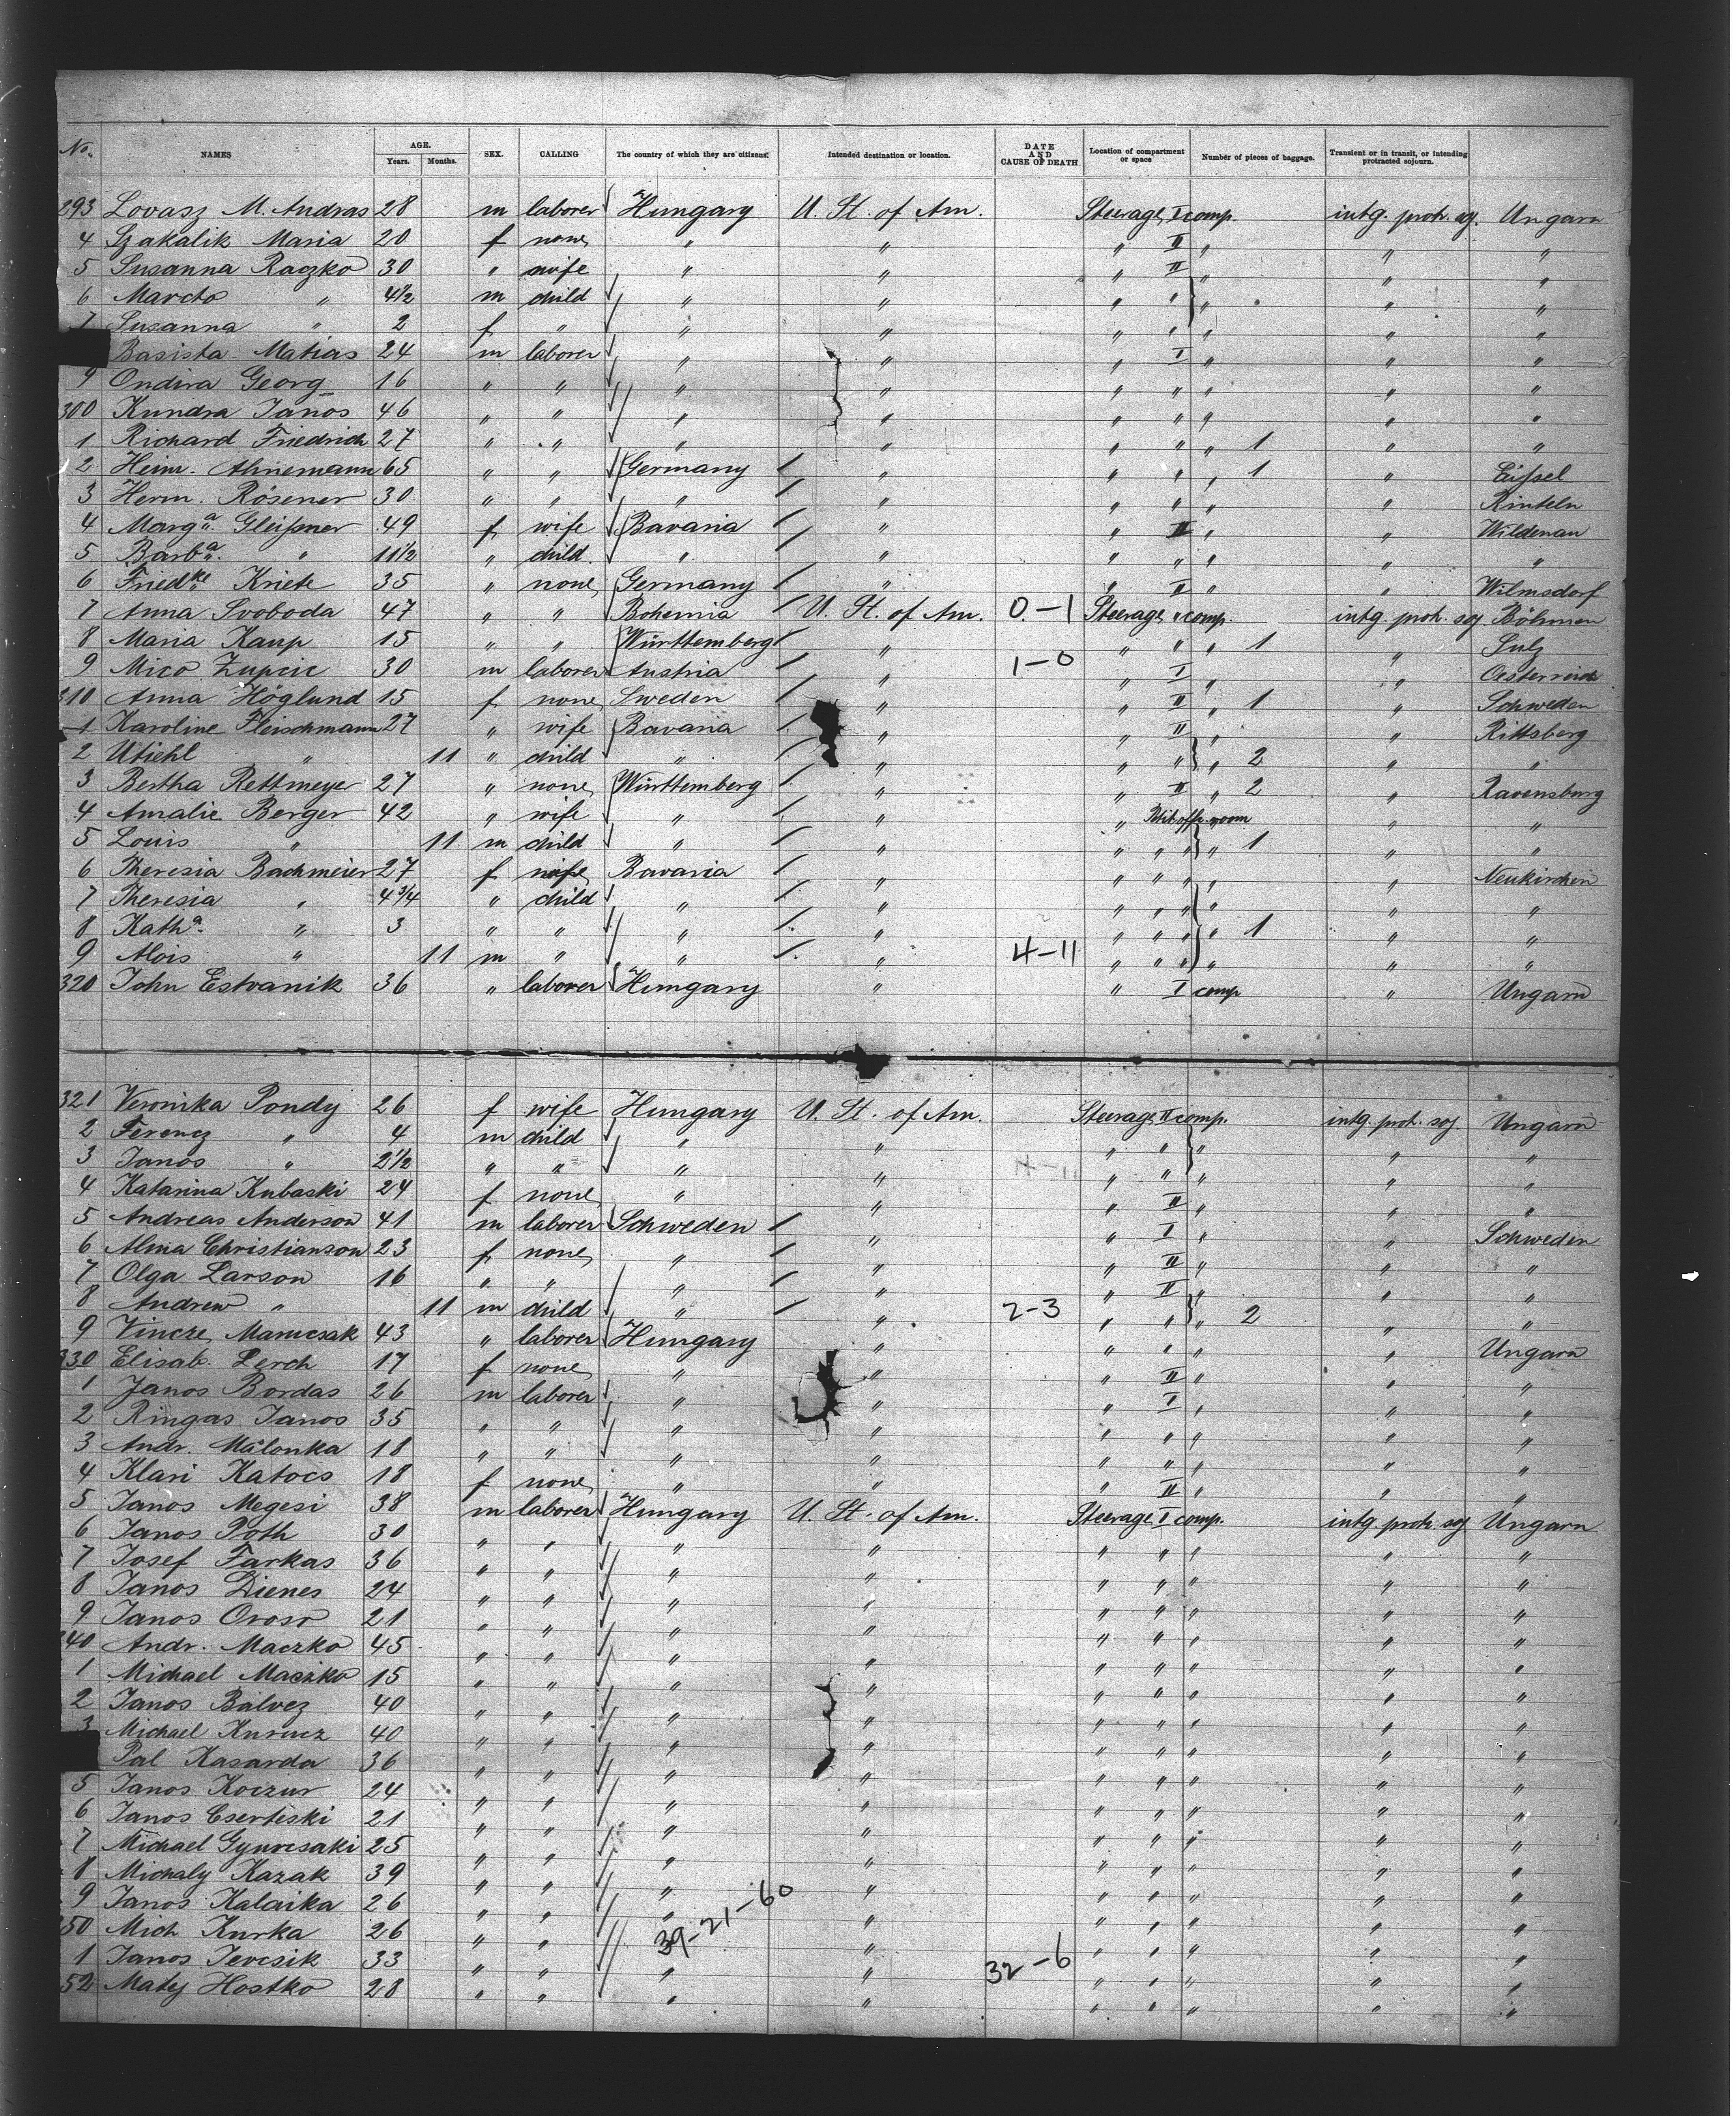 No. NAMES AGE. Years. Months. SEX. CALLING The country of which they are citizens. Intended destination or location. DATE AND CAUSE OF DEATH Location of compartment or space Number of pieces of baggage. Transient or in transit, or intending protracted sojourn.
293 Lovasz M. Andras 28 m laborer Hungary U. St. of Am. Steerage I comp. intg. protr. soj. Ungarn
4 Szakalik Maria 20 f none " " " II " " "
5 Susanna Raczko 30 " wife " " " II " " "
6 Marcto " 4½ m child " " " " " " "
7 Susanna " 2 f " " " " " " " "
Basista Matias 24 m laborer " " " I " " "
9 Ondira Georg 16 " " " " " " " " "
300 Kundra Janos 46 " " " " " " " " "
1 Richard Friedrich 27 " " " " " " " 1 " "
2 Heinr. Ahnemann 65 " " Germany " " " " 1 "
3 Herm. Rösener 30 " " " " " " " " Rinteln
4 Marga. Gleißner 49 f wife Bavaria " " II " " Wildenau
5 Barba. " 11½ " child " " " " " " "
6 Friedke Kriete 35 " none Germany " " II " " Wilmsdorf
7 Anna Svoboda 47 " " Bohemia U. St. of Am. 0-1 Steerage " comp. intg. protr. soj Böhmen
8 Maria Kaup 15 " " Württemberg " " " " 1 " Sulz
9 Mico Zupcic 30 m laborer Austria " 1-0 " I " " Oesterreich
310 Anna Höglund 15 f none Sweden " " II " 1 " Schweden
1 Karoline Fleischmann 27 " wife Bavaria " " II " " Rittsberg
2 Utiehl " 11 " child " " " " " 2 " "
3 Bertha Rettmeyer 27 " none Württemberg " " II " 2 " Ravensburg
4 Amalie Berger 42 " wife " " " room " "
5 Louis " 11 m child " " " " " " 1 " "
6 Theresia Bachmeier 27 f wife Bavaria " " " " " " Neukirchen
7 Theresia " 4¾ " child " " " " " " " "
8 Katha. " 3 " " " " " " " " 1 " "
9 Alois " 11 m " " " 4-11 " " " " " "
320 John Estvanik 36 " laborer Hungary " " I comp " Ungarn
321 Veronika Pondy 26 f wife Hungary U. St. of Am. Steerage II comp. intg. protr. soj. Ungarn
2 Ferencz " 4 m child " " " " " " "
3 Janos " 2½ " " " " 4-11 " " " " "
4 Katarina Kubaski 24 f none " " " II " " "
5 Andreas Anderson 41 m laborer Schweden " " I " " Schweden
6 Alma Christianson 23 f none " " " II " " "
7 Olga Larson 16 " " " " " II " " "
8 Andrew " 11 m child " " 2-3 " " " 2 " "
9 Vincze Mamcsak 43 " laborer Hungary " " " " " Ungarn
330 Elisab. Lerch 17 f none " " " II " " "
1 Janos Bordas 26 m laborer " " " I " " "
2 Ringas Janos 35 " " " " " " " " "
3 Andr. Malonka 18 " " " " " " " " "
4 Klari Katocs 18 f none " " " II " " "
5 Janos Megesi 38 m laborer Hungary U. St. of Am. Steerage I comp. intg. protr. soj Ungarn
6 Janos Poth 30 " " " " " " " " "
7 Josef Farkas 36 " " " " " " " " "
8 Janos Dienes 24 " " " " " " " " "
9 Janos Orosr 21 " " " " " " " " "
340 Andr. Maczko 45 " " " " " " " " "
1 Michael Maczko 15 " " " " " " " " "
2 Janos Balvez 40 " " " " " " " " "
3 Michael Kurucz 40 " " " " " " " " "
Pal Kasarda 36 " " " " " " " " "
5 Janos Koczur 24 " " " " " " " " "
6 Janos Cserteski 21 " " " " " " " " "
7 Michael Gyurcsaki 25 " " " " " " " " "
8 Michaly Kazak 39 " " " " " " " " "
9 Janos Kalaika 26 " " " " " " " " "
350 Mich Kurka 26 " " " 39-21-60 " " " " " "
1 Janos Jevcsik 33 " " " " 32-6 " " " " "
52 Maty Hostko 28 " " " " " " " " "